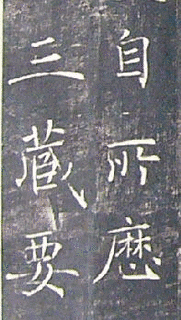 自所歷
三藏要